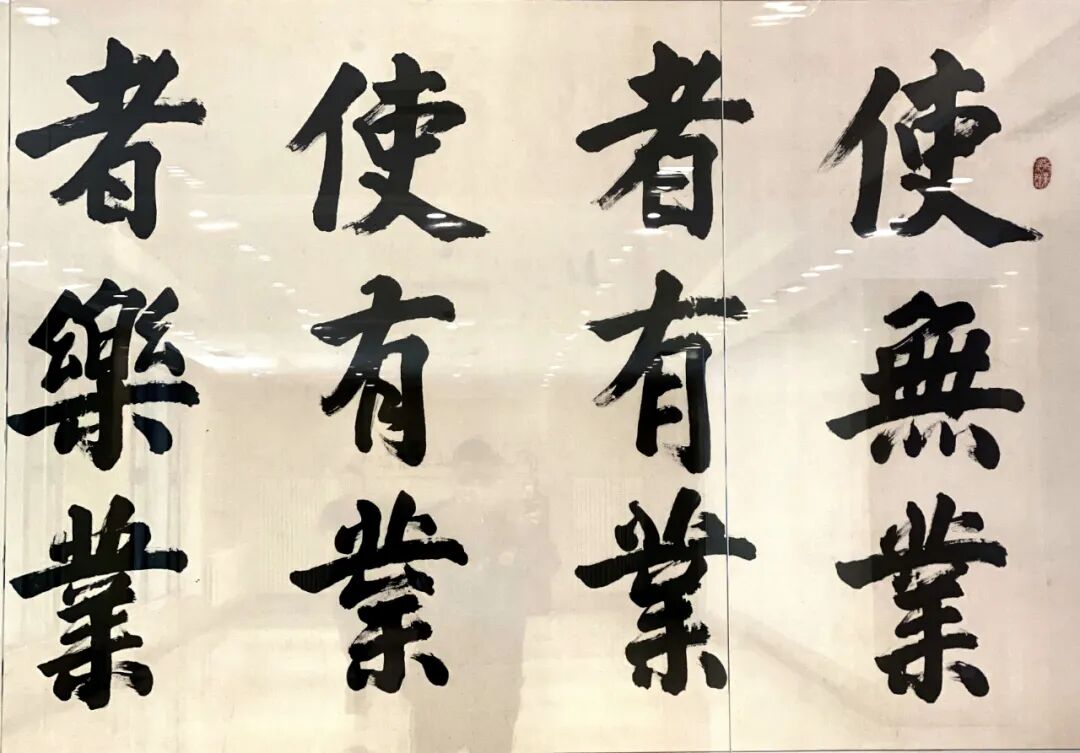 使無業
者有業
使有業
者樂業